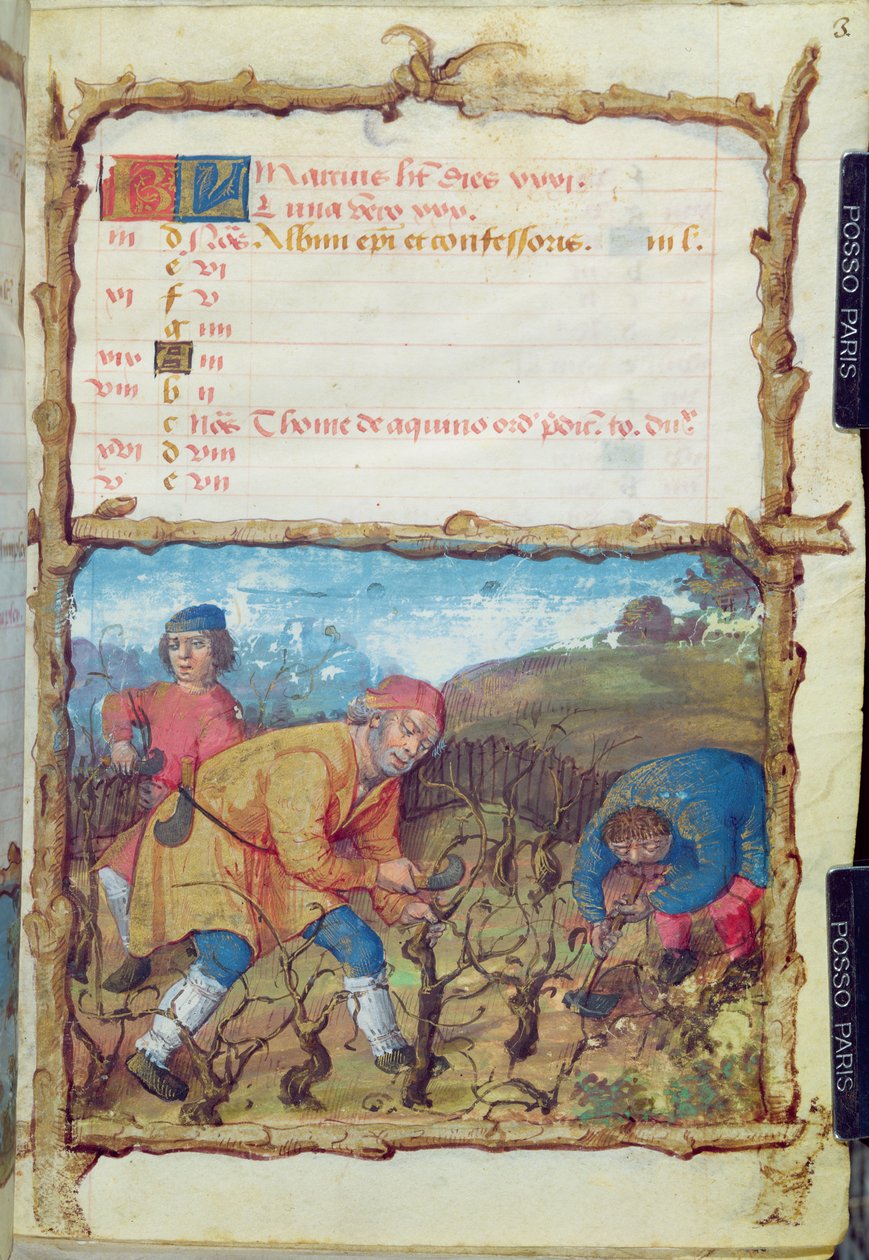 3.
KL Marcius ht dies xxxi.
Luna vero xxx.
iii d Nos Albini epi et confessoris. iii l.
e vi
vi f v
g iiii
xix A iii
viii b ii
c nos Thome de aquino ord' pdic. to. dux
xvi d viii
v e vii
POSSO PARIS
POSSO PARIS